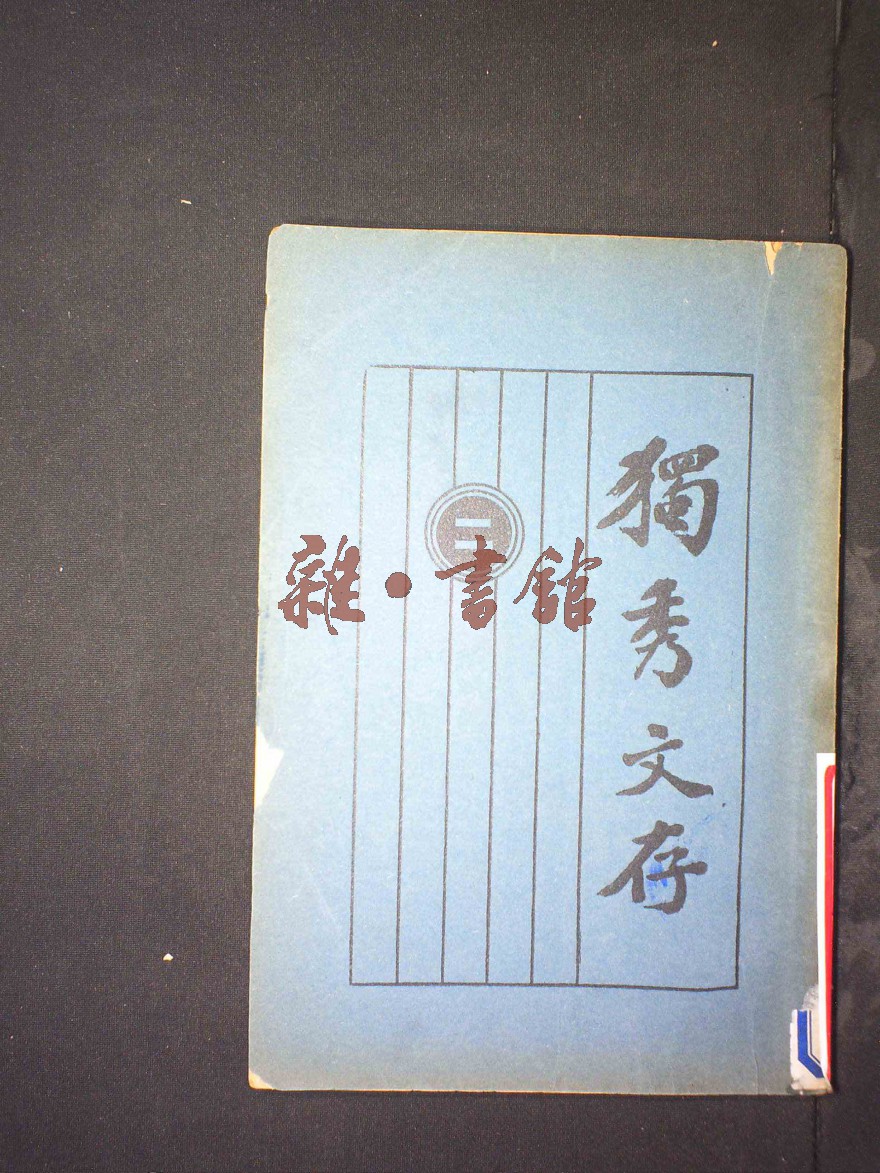 獨秀文存
二
雜·書館